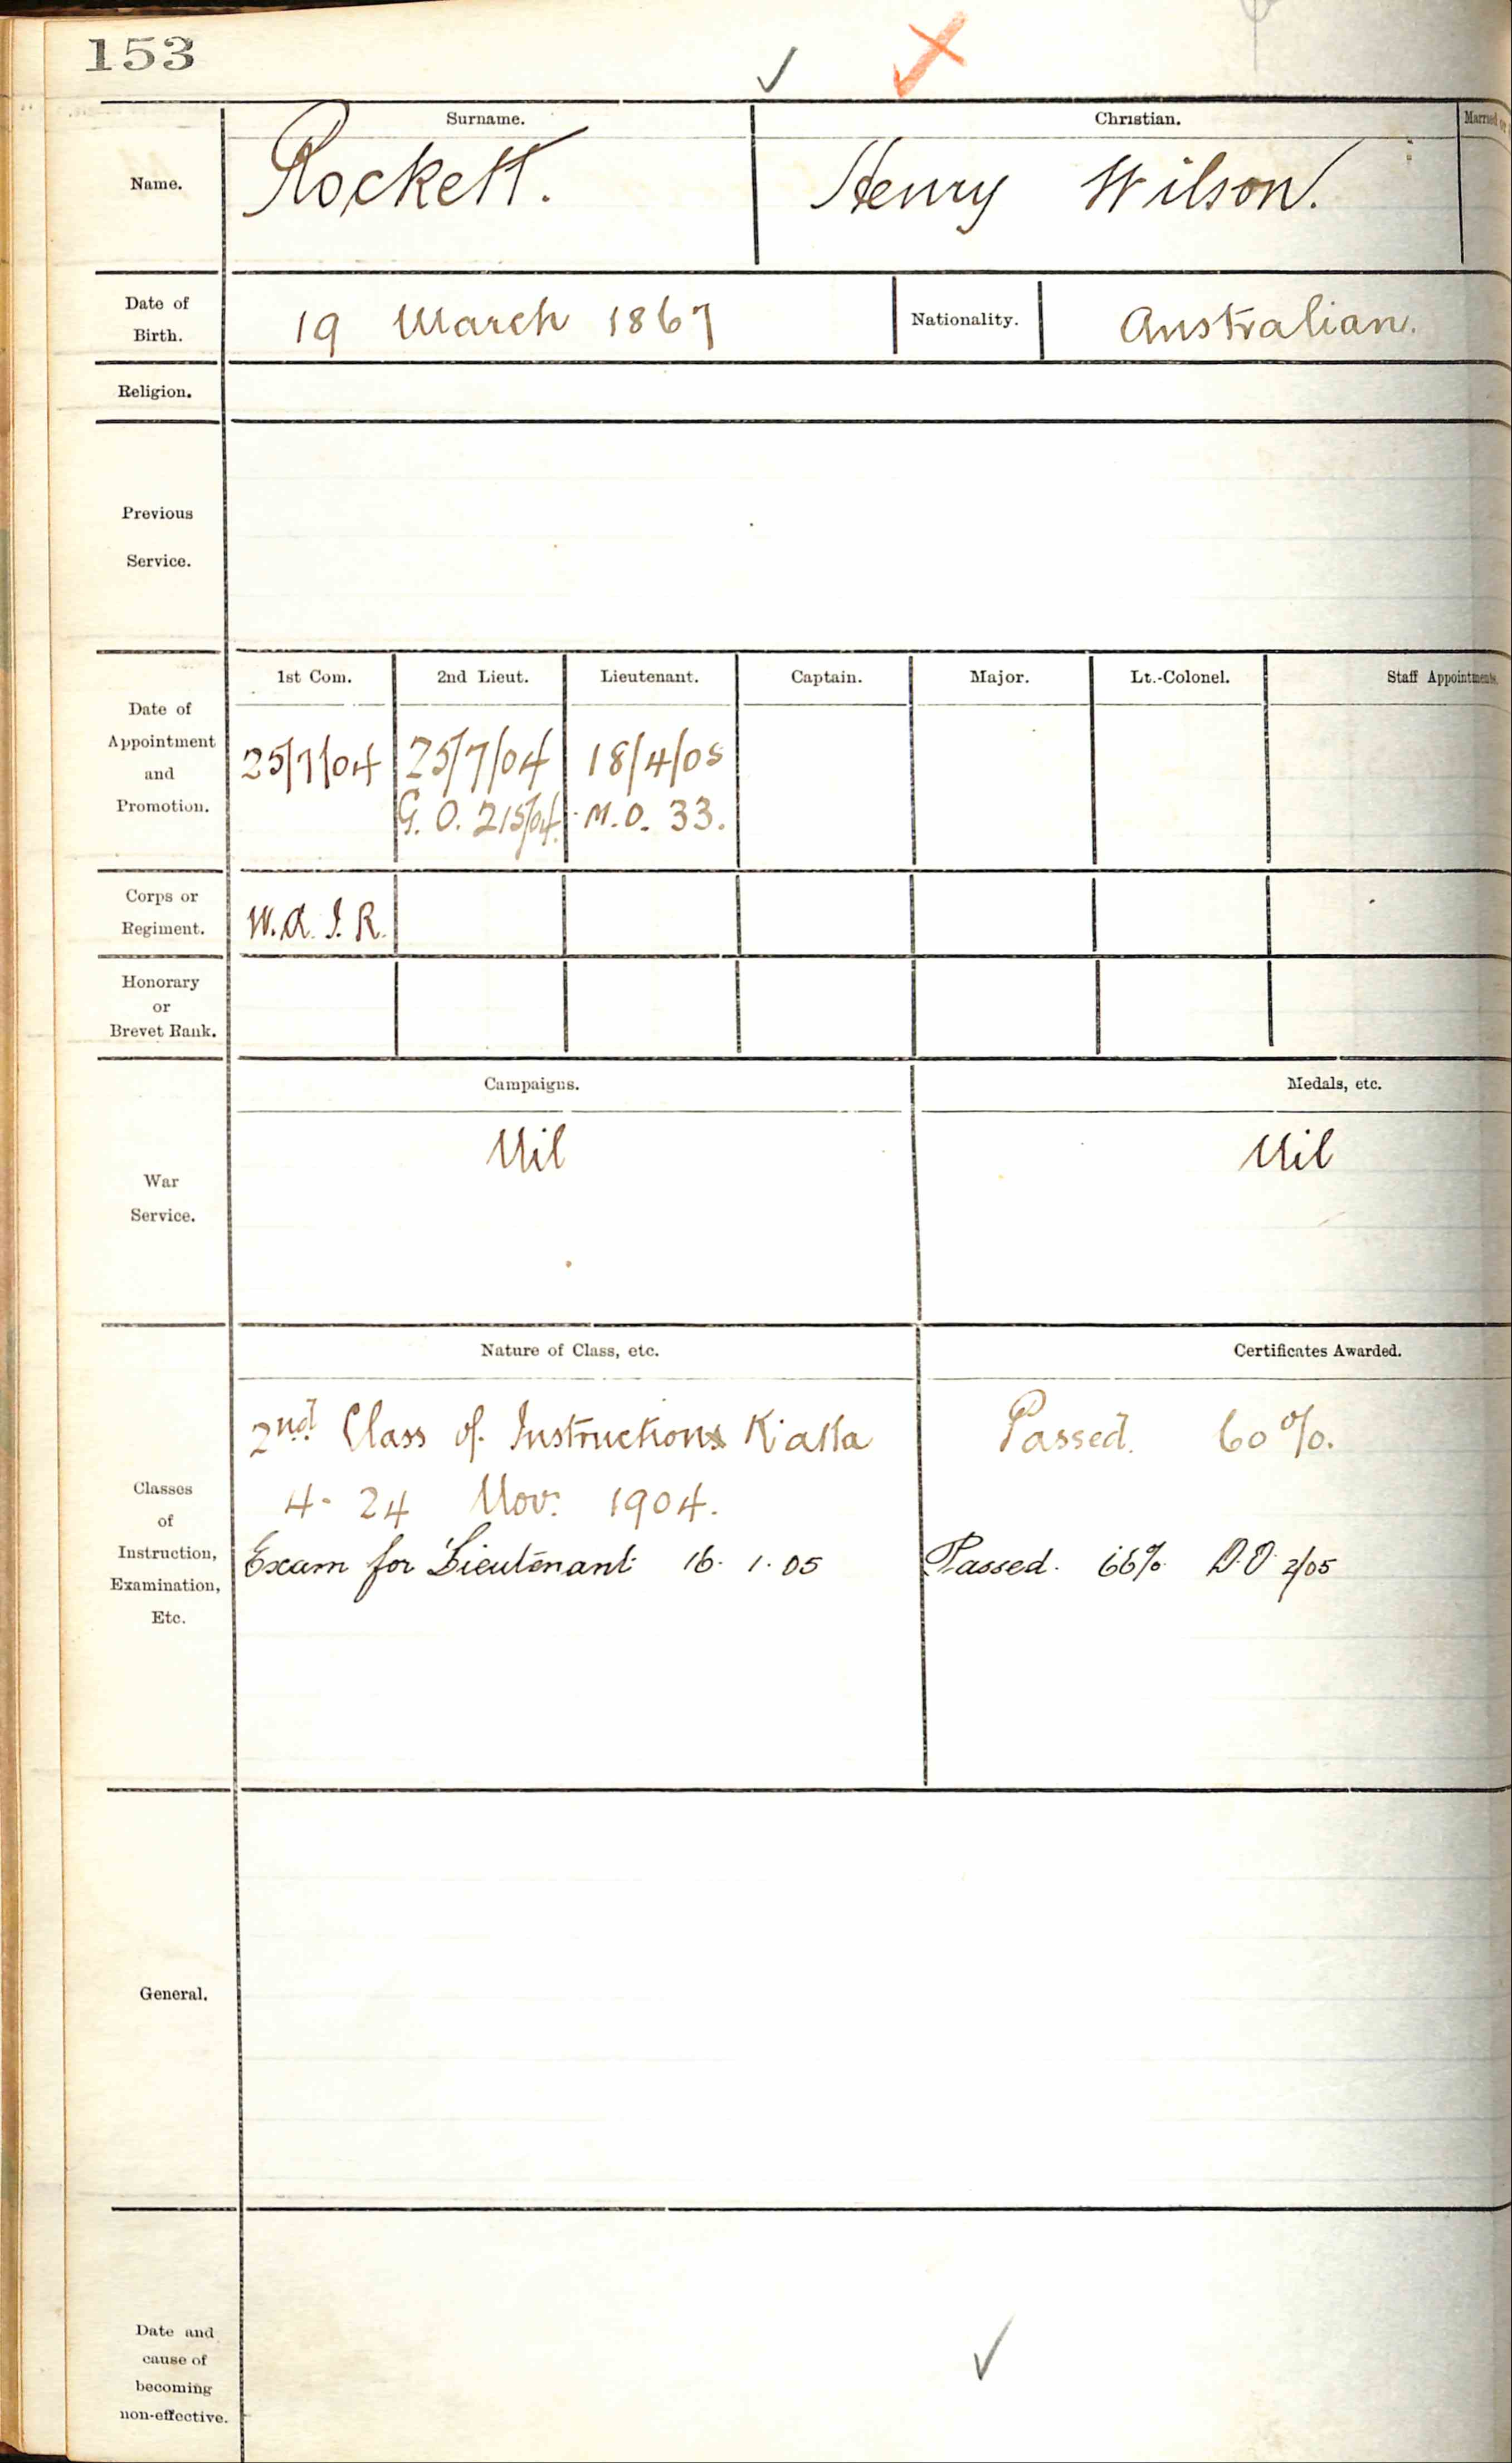 153
Surname. Christian.
Name. Rockett. Henry Wilson.
Date of Birth. 19 March 1867 Nationality. Australian.
Religion.
Previous
Service.
1st Com. 2nd Lieut. Lieutenant. Captain. Major. Lt.-Colonel. Staff Appointments.
Date of
Appointment
and
Promotion.
25/7/04 25/7/04 18/4/05
G. O. 215/04. M.O. 33.
Corps or
Regiment. W.A.I.R.
Honorary
or
Brevet Rank.
Campaigns. Medals, etc.
Nil Nil
War
Service.
Nature of Class, etc. Certificates Awarded.
2nd Class of Instruction K'atta Passed. 60%.
4- 24 Nov. 1904.
Exam for Lieutenant 16. 1. 05 Passed. 66% D.O. 2/05
Classes
of
Instruction,
Examination,
Etc.
General.
Date and
cause of
becoming
non-effective.